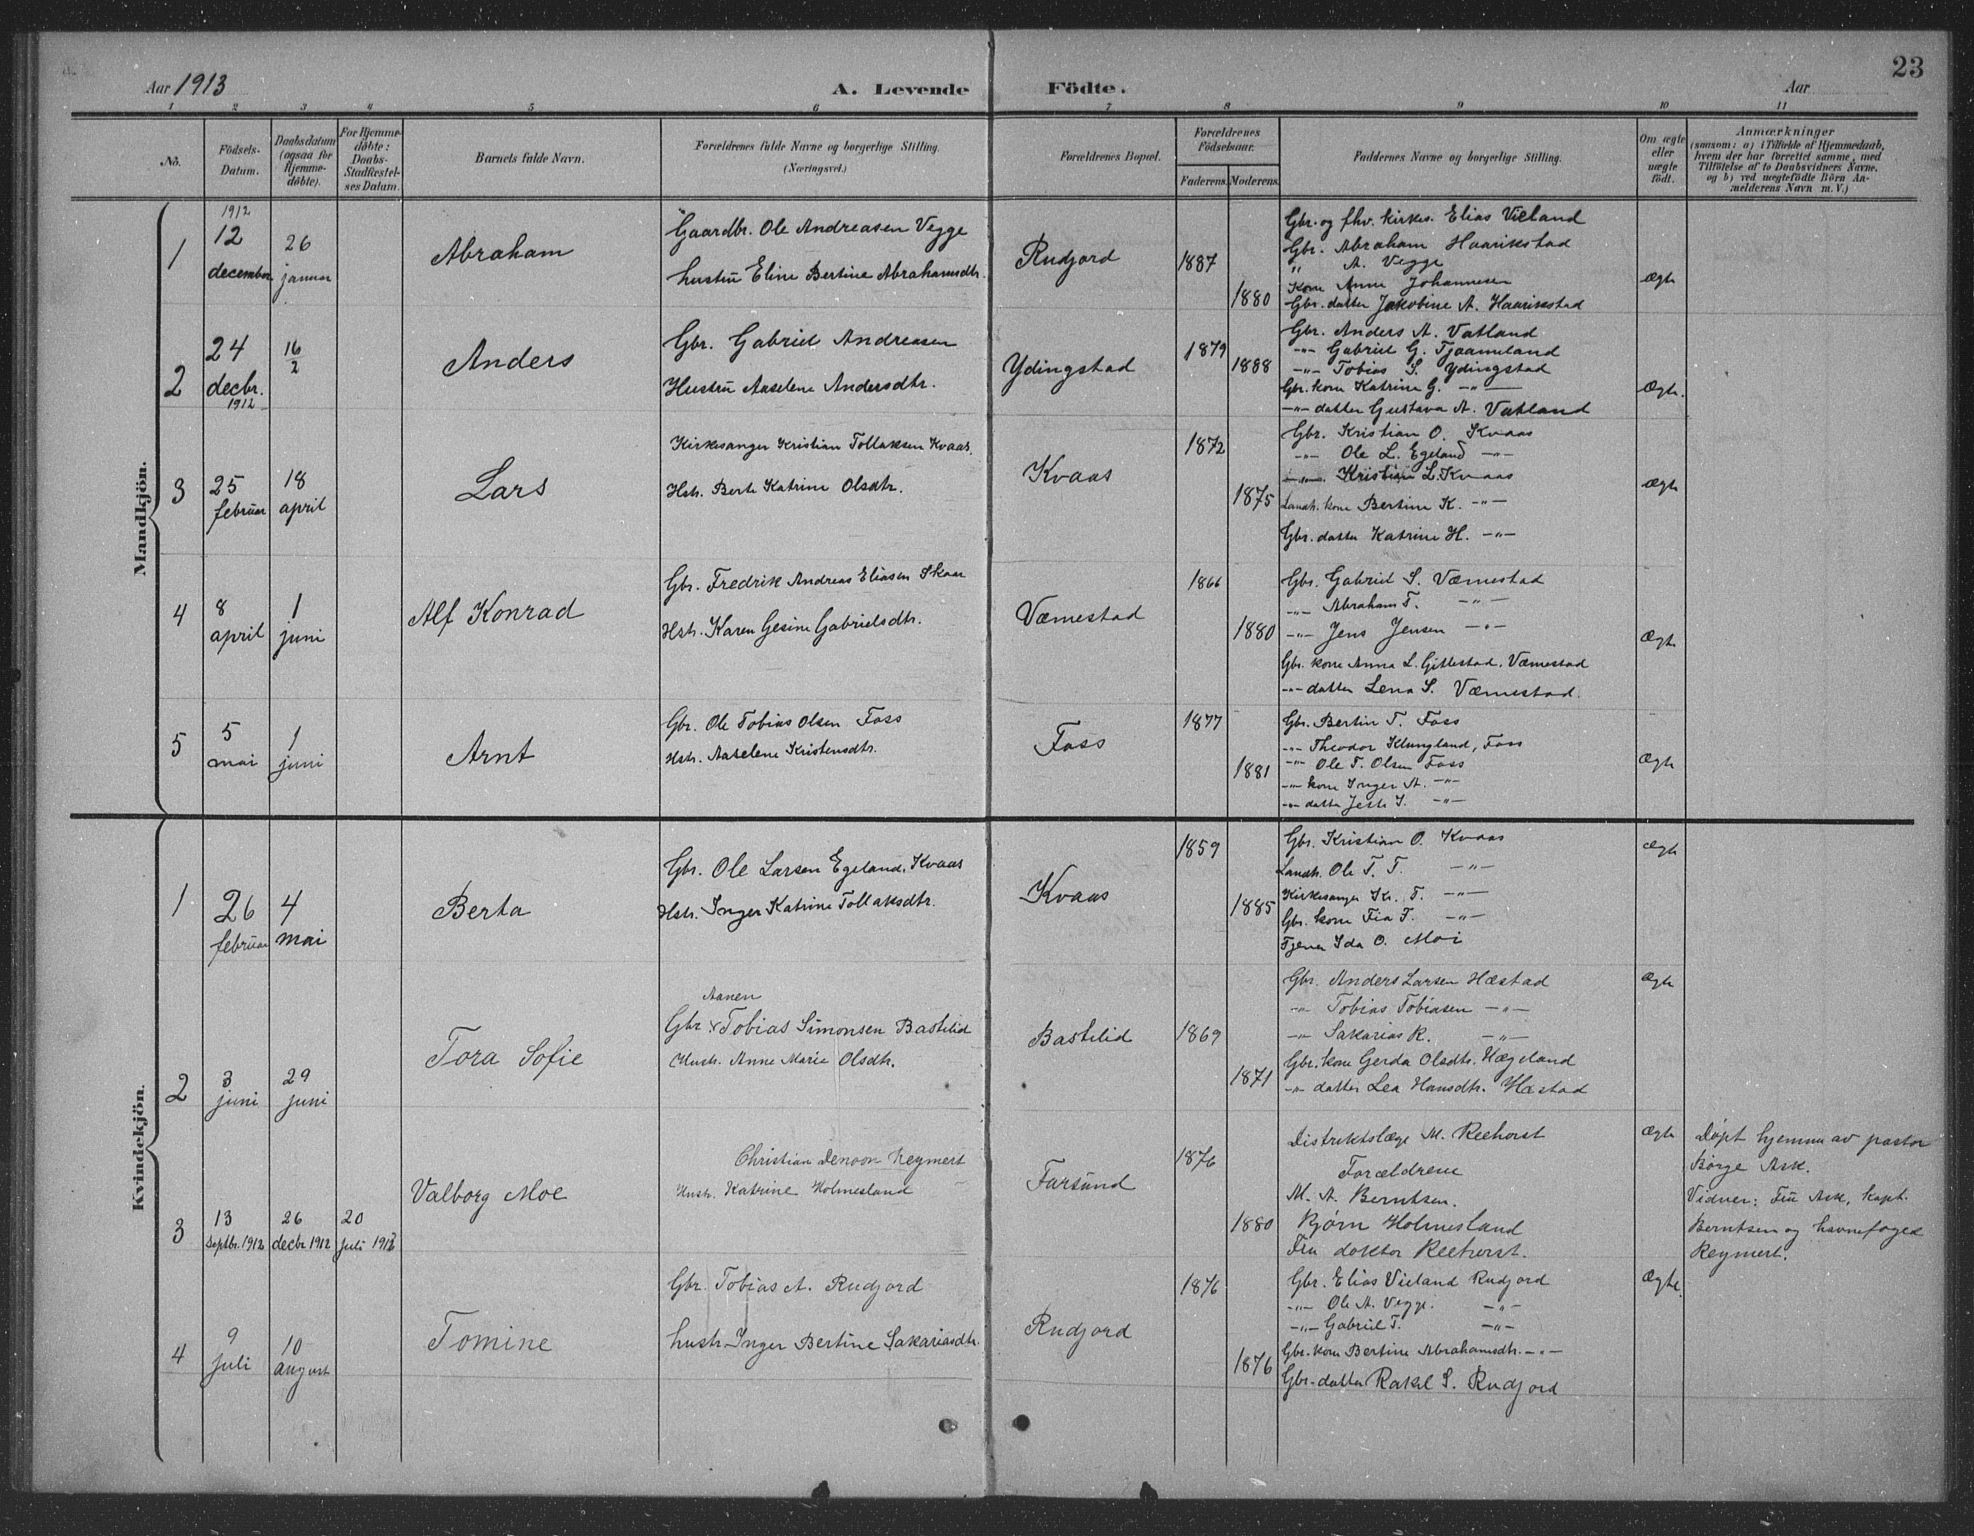 23
Aar 1913
A. Levende
Födte.
Aar
1 2 3 4 5 6 7 8 9 10 11
No.
Födsels-
Datum.
Daabsdatum
(ogsaa for
Hjemme-
döbte).
For Hjemme-
döbte:
Daabs-
Stadfæstel-
ses Datum.
Barnets fulde Navn.
Forældrenes fulde Navne og borgerlige Stilling.
(Næringsvei.)
Forældrenes Bopæl.
Forældrenes
Födselsaar.
Faderens. Moderens.
Faddernes Navne og borgerlige Stilling.
Om ægte
eller
uægte
födt.
Anmærkninger
(saasom: a) i Tilfælde af Hjemmedaab,
hvem der har forrettet samme, med
Tilföielse af to Daabsvidners Navne,
og b) ved uægtefödte Börn An-
melderens Navn m. V.)
Mandkjön.
1
1912
12
december
26
januar
Abraham
Gaardbr. Ole Andreasen Vegge
hustru Eline Bertine Abrahamsdtr.
Rudjord
1887
1880
Gbr. og fhv. kirkes. Elias Vieland
Gbr. Abraham Haarikstad
" A. Vegge
Kone Anne Johannesen
Gbr. datter Jakobine A. Haarikstad
Ægte
2
24
decbr.
1912
16
2
Anders
Gbr. Gabriel Andreasen
Hustru Aaselene Andersdtr.
Ydingstad
1879
1888
Gbr. Anders A. Vatland
-"- Gabriel G. Tjaameland
-"- Tobias S. Ydingstad
Gbr. kone Katrine G. -"-
-"- datter Gustava A. Vatland
Ægte.
3
25
februar
18
april
Lars
Kirkesanger Kristian Tollaksen Kvaas.
Hstr. Berte Katrine Olsdtr.
Kvaas
1872
1875
Gbr. Kristian O. Kvaas
-"- Ole L. Egeland -"-
Kristian L. Kvaas
Landh. kone Bertine K. -"-
Gbr. datter Katrine H. -"-
Ægte
4
8
april
1
juni
Alf Konrad
Gbr. Fredrik Andreas Eliasen Skaar
Hstr. Karen Gesine Gabrielsdtr.
Væmestad
1866
1880
Gbr. Gabriel S. Væmestad
-"- Abraham T. -"-
-"- Jens Jensen -"-
Gbr. kone Anna L. Gillestad, Væmestad
-"- datter Lena S. Væmestad.
Ægte
5
5
mai
1
juni
Arnt
Gbr. Ole Tobias Olsen Foss
Hstr. Aaselene Kristensdtr.
Foss
1877
1881
Gbr. Bertin T. Foss
-"- Theodor Klungland, Foss
-"- Ole T. Olsen Foss
-"- kone Inger A. -"-
-"- datter
-"-
Ægte
Kvindekjön.
1
26
februar
4
mai
Berta
Gbr. Ole Larsen Egeland, Kvaas
Hstr. Inger Katrine Tollaksdtr.
Kvaas
1859
1885
Gbr. Kristian O. Kvaas
Landh. Ole T. T. -"-
Kirkesanger Kr. T. -"-
Gbr. kone Tia T. -"-
Tjener Ida O. Moi
Ægte
2
3
juni
29
juni
Tora Sofie
Aanen
Gbr. Tobias Simonsen Bastelid
Hustr. Anne Marie Olsdtr.
Bastelid
1869
1871
Gbr. Anders Larsen Hæstad
-"- Tobias Tobiasen -"-
-"- Sakarias R. -"-
Gbr. kone Gerda Olsdtr. Hægeland
-"- datter Lea Hansdtr. Hæstad
Ægte
3
13
Septbr. 1912
26
decbr 1912
20
juli 1913
Valborg Moe
Christian Denoon Reymert
Hustr. Katrine Holmesland
Farsund
1876
1880
Distriktslæge M. Reehorst
Forældrene
M. A. Berntsen.
Bjørn Holmesland
Fru doktor Reehorst.
Ægte
Døpt hjemme av pastor
Børge Ask.
Vidner: Fru Ask, kapt.
Berntsen og havnefoged
Reymert.
4
9
juli
10
august
Tomine
Gbr. Tobias A. Rudjord
hustr. Inger Bertine Sakariasdtr.
Rudjord
1876
1876
Gbr. Elias Vieland Rudjord
-"- Ole A. Vegge. -"-
-"- Gabriel T. -"-
Gbr. kone Bertine Abrahamsdtr. -"-
Gbr. datter Rakel S. Rudjord
Ægte